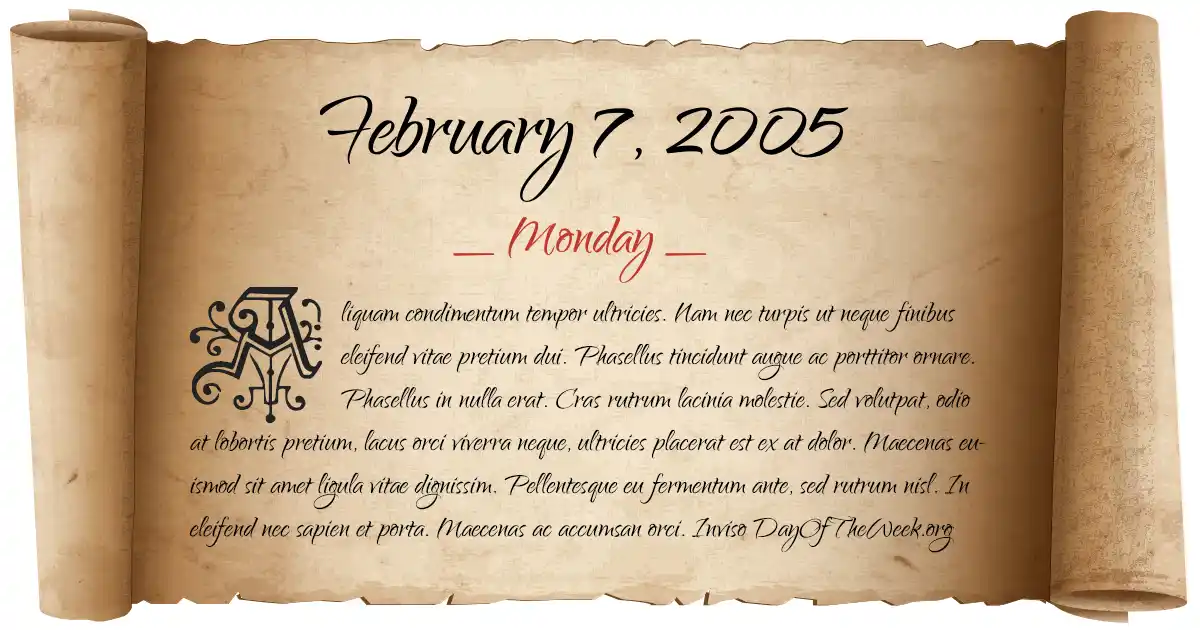 February 7, 2005
_ Monday _
Aliquam condimentum tempor ultricies. Nam nec turpis ut neque finibus
eleifend vitae pretium dui. Phasellus tincidunt augue ac porttitor ornare.
Phasellus in nulla erat. Cras rutrum lacinia molestie. Sed volutpat, odio
at lobortis pretium, lacus orci viverra neque, ultricies placerat est ex at dolor. Maecenas eu-
ismod sit amet ligula vitae dignissim. Pellentesque eu fermentum ante, sed rutrum nisl. In
eleifend nec sapien et porta. Maecenas ac accumsan orci. Inviso DayOfTheWeek.org